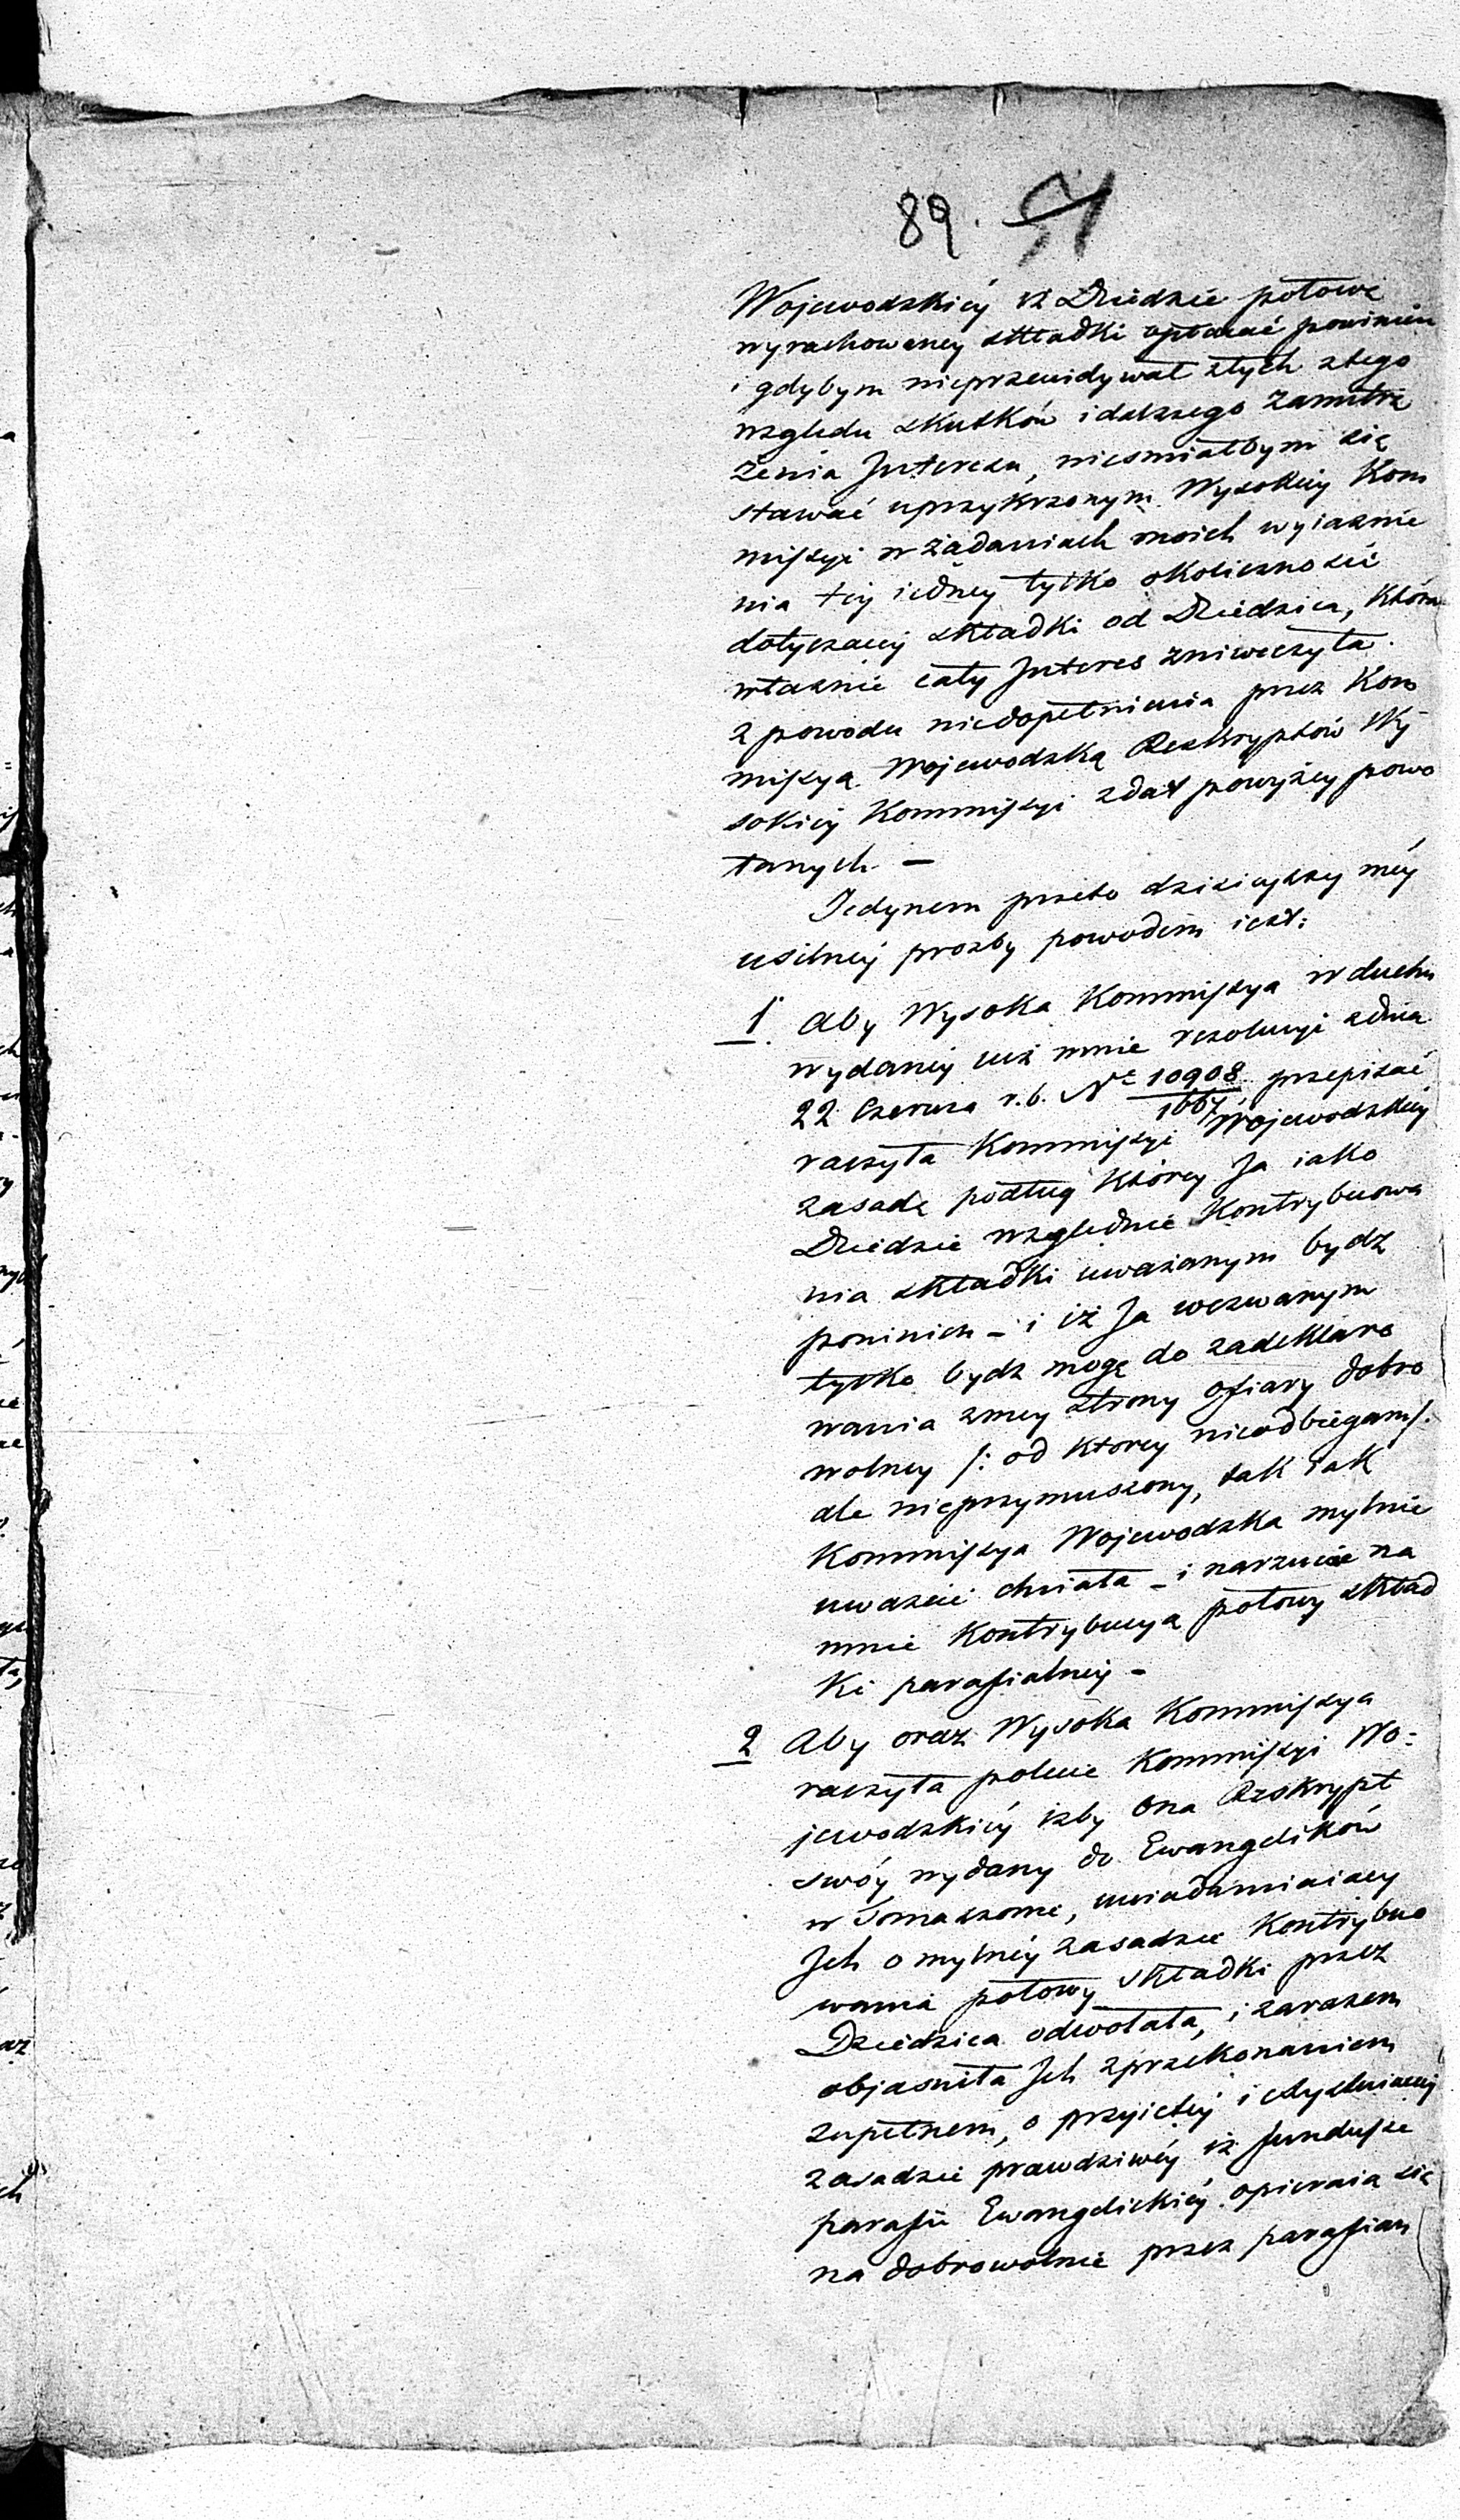 89. 51
Wojewodzkiéy iż Dziedzic połowę
wyrachowaney składki opłacać powinien
i gdybym nieprzewidywał złych ztego
względu skutków i dalszego zamitrę
żenia Interesu, niesmiałbym się
stawać uprzykrzonym Wysokiéy Kom
missyi w żądaniach moich wyiaśnie
nia téy iedney tylko okoliczności
dotyczącey składki od Dziedzica, która
właśnie cały Interes zniweczyła
z powodu niedopełnienia przez Kom
missyą Wojewodzką Reskryptów Wy
sokiéy Kommissyi zdat powyżey powo
łanych —
Jedynem przeto dzisieyszey méy
usilnéy prozby powodem iest:
1. Aby Wysoka Kommissya w duchu
wydanéy iuż mnie rezolucyi zdnia
22 Czerwca r.b. Nr 10908/1667 przepisać
raczyła Kommissyi Wojewodzkiéy
zasadę podług którey Ja iako
Dziedzic względnie Kontrybuowa
nia składki uważanym bydz
powinien – i iż Ja wezwanym
tylko bydz mogę do zadeklaro
wania zmey strony ofiary dobro
wolney /: od ktorey nieodbiegam :/
ale nieprzymuszony, tak iak
Kommissya Wojewodzka mylnie
uważać chciała – i narzucać na
mnie Kontrybucyą połowy skład
ki parafialnéy –
2 Aby oraz Wysoka Kommissya
raczyła polecić Kommissyi Wo=
jewodzkiéy izby ona Reskrypt
swóy wydany do Ewangelików
w Tomaszowie, uwiadamiaiący
Ich o mylnéy zasadzie Kontrybuo
wania połowy składki przez
Dziedzica odwołała, i zarazem
objasniła Ich zprzekonaniem
zupełnem, o przyiętéy i
zasadzie prawdziwéy iż fundusze
parafii Ewangelickiéy opieraią się
na dobrowolnie przez parafian